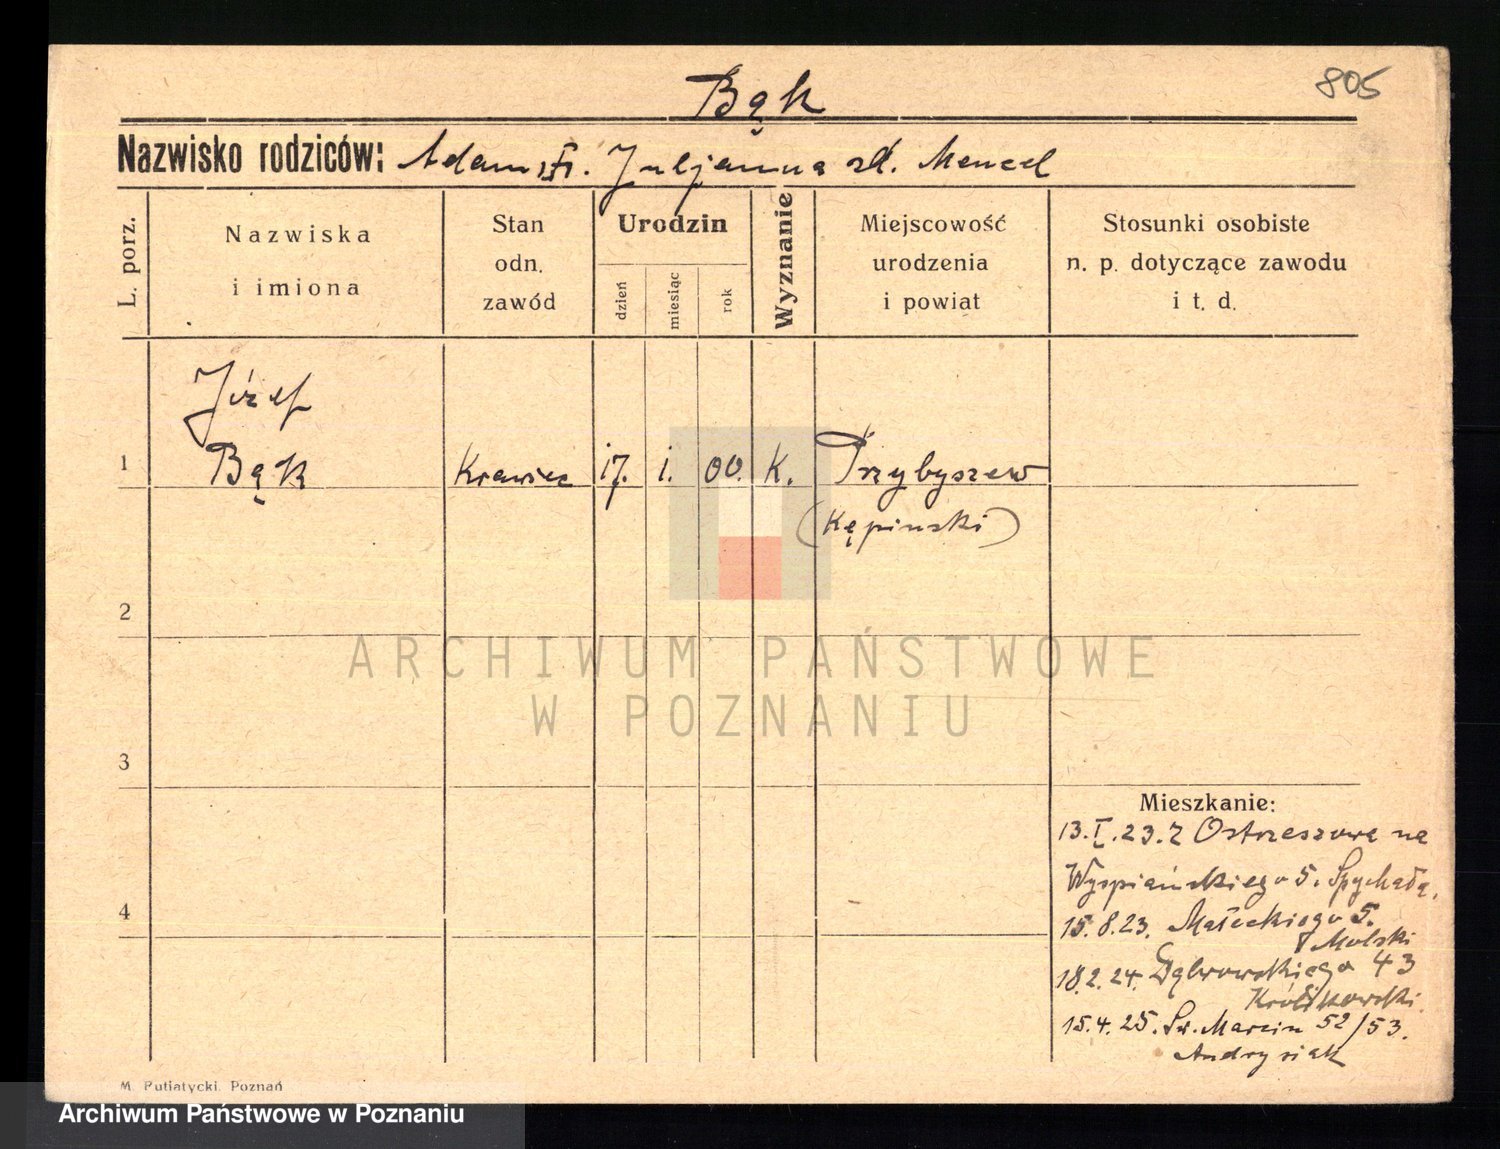 Bąk
805
Nazwisko rodziców: Adam i Fr. Juljanna zd. Mencel
L. porz.
Nazwiska
i imiona
Stan
odn.
zawód
Urodzin
dzień
miesiąc
rok
Wyznanie
Miejscowość
urodzenia
i powiat
Stosunki osobiste
n. p. dotyczące zawodu
i t. d.
Józef
1 Bąk Krawiec 17. i. 00. K. Przybyszew
(Kępiński)
2
ARCHIWUM PAŃSTWOWE
W POZNANIU
3
Mieszkanie:
13.I.23. z Ostrzeszowa na
Wyspiańskiego 5. Spychała.
4
15.8.23. Małeckiego 5.
Molski
18.2.24. Dąbrowskiego 43
Królikowski
15.4.25. Św. Marcin 52/53.
Andrysiak
M. Putiatycki, Poznań
Archiwum Państwowe w Poznaniu